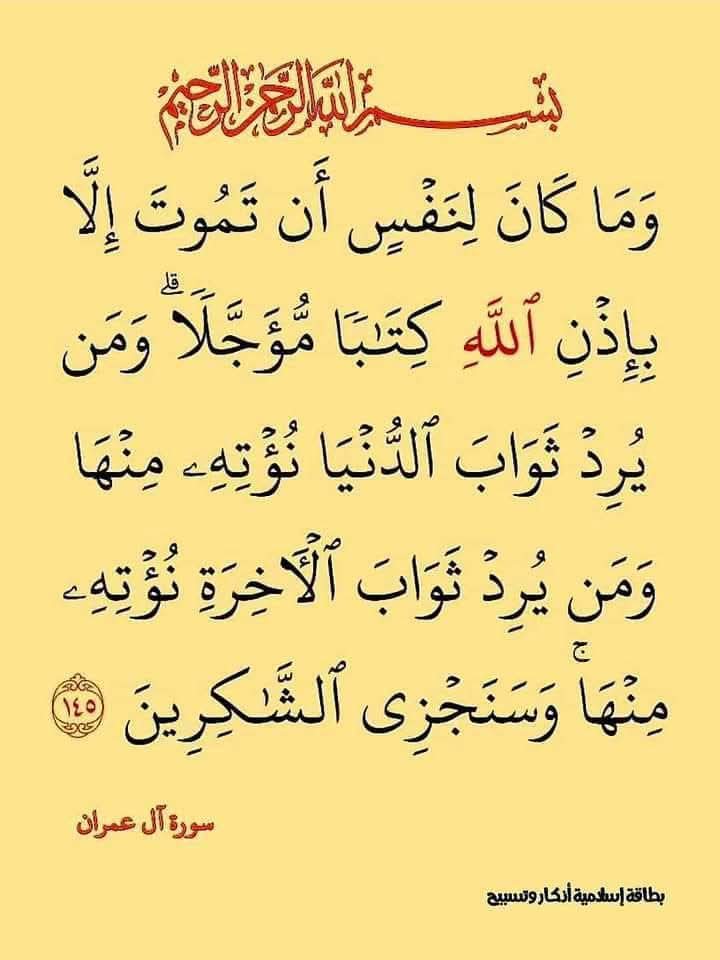 بسم الله الرحمن الرحيم
وَمَا كَانَ لِنَفْسٍ أَن تَمُوتَ إِلَّا
بِإِذْنِ ٱللَّهِ كِتَـٰبًا مُّؤَجَّلًا ۗ وَمَن
يُرِدْ ثَوَابَ ٱلدُّنْيَا نُؤْتِهِۦ مِنْهَا
وَمَن يُرِدْ ثَوَابَ ٱلْـَٔاخِرَةِ نُؤْتِهِۦ
مِنْهَا ۚ وَسَنَجْزِى ٱلشَّـٰكِرِينَ ١٤٥
سورة آل عمران
بطاقة إسلامية أذكار وتسبيح